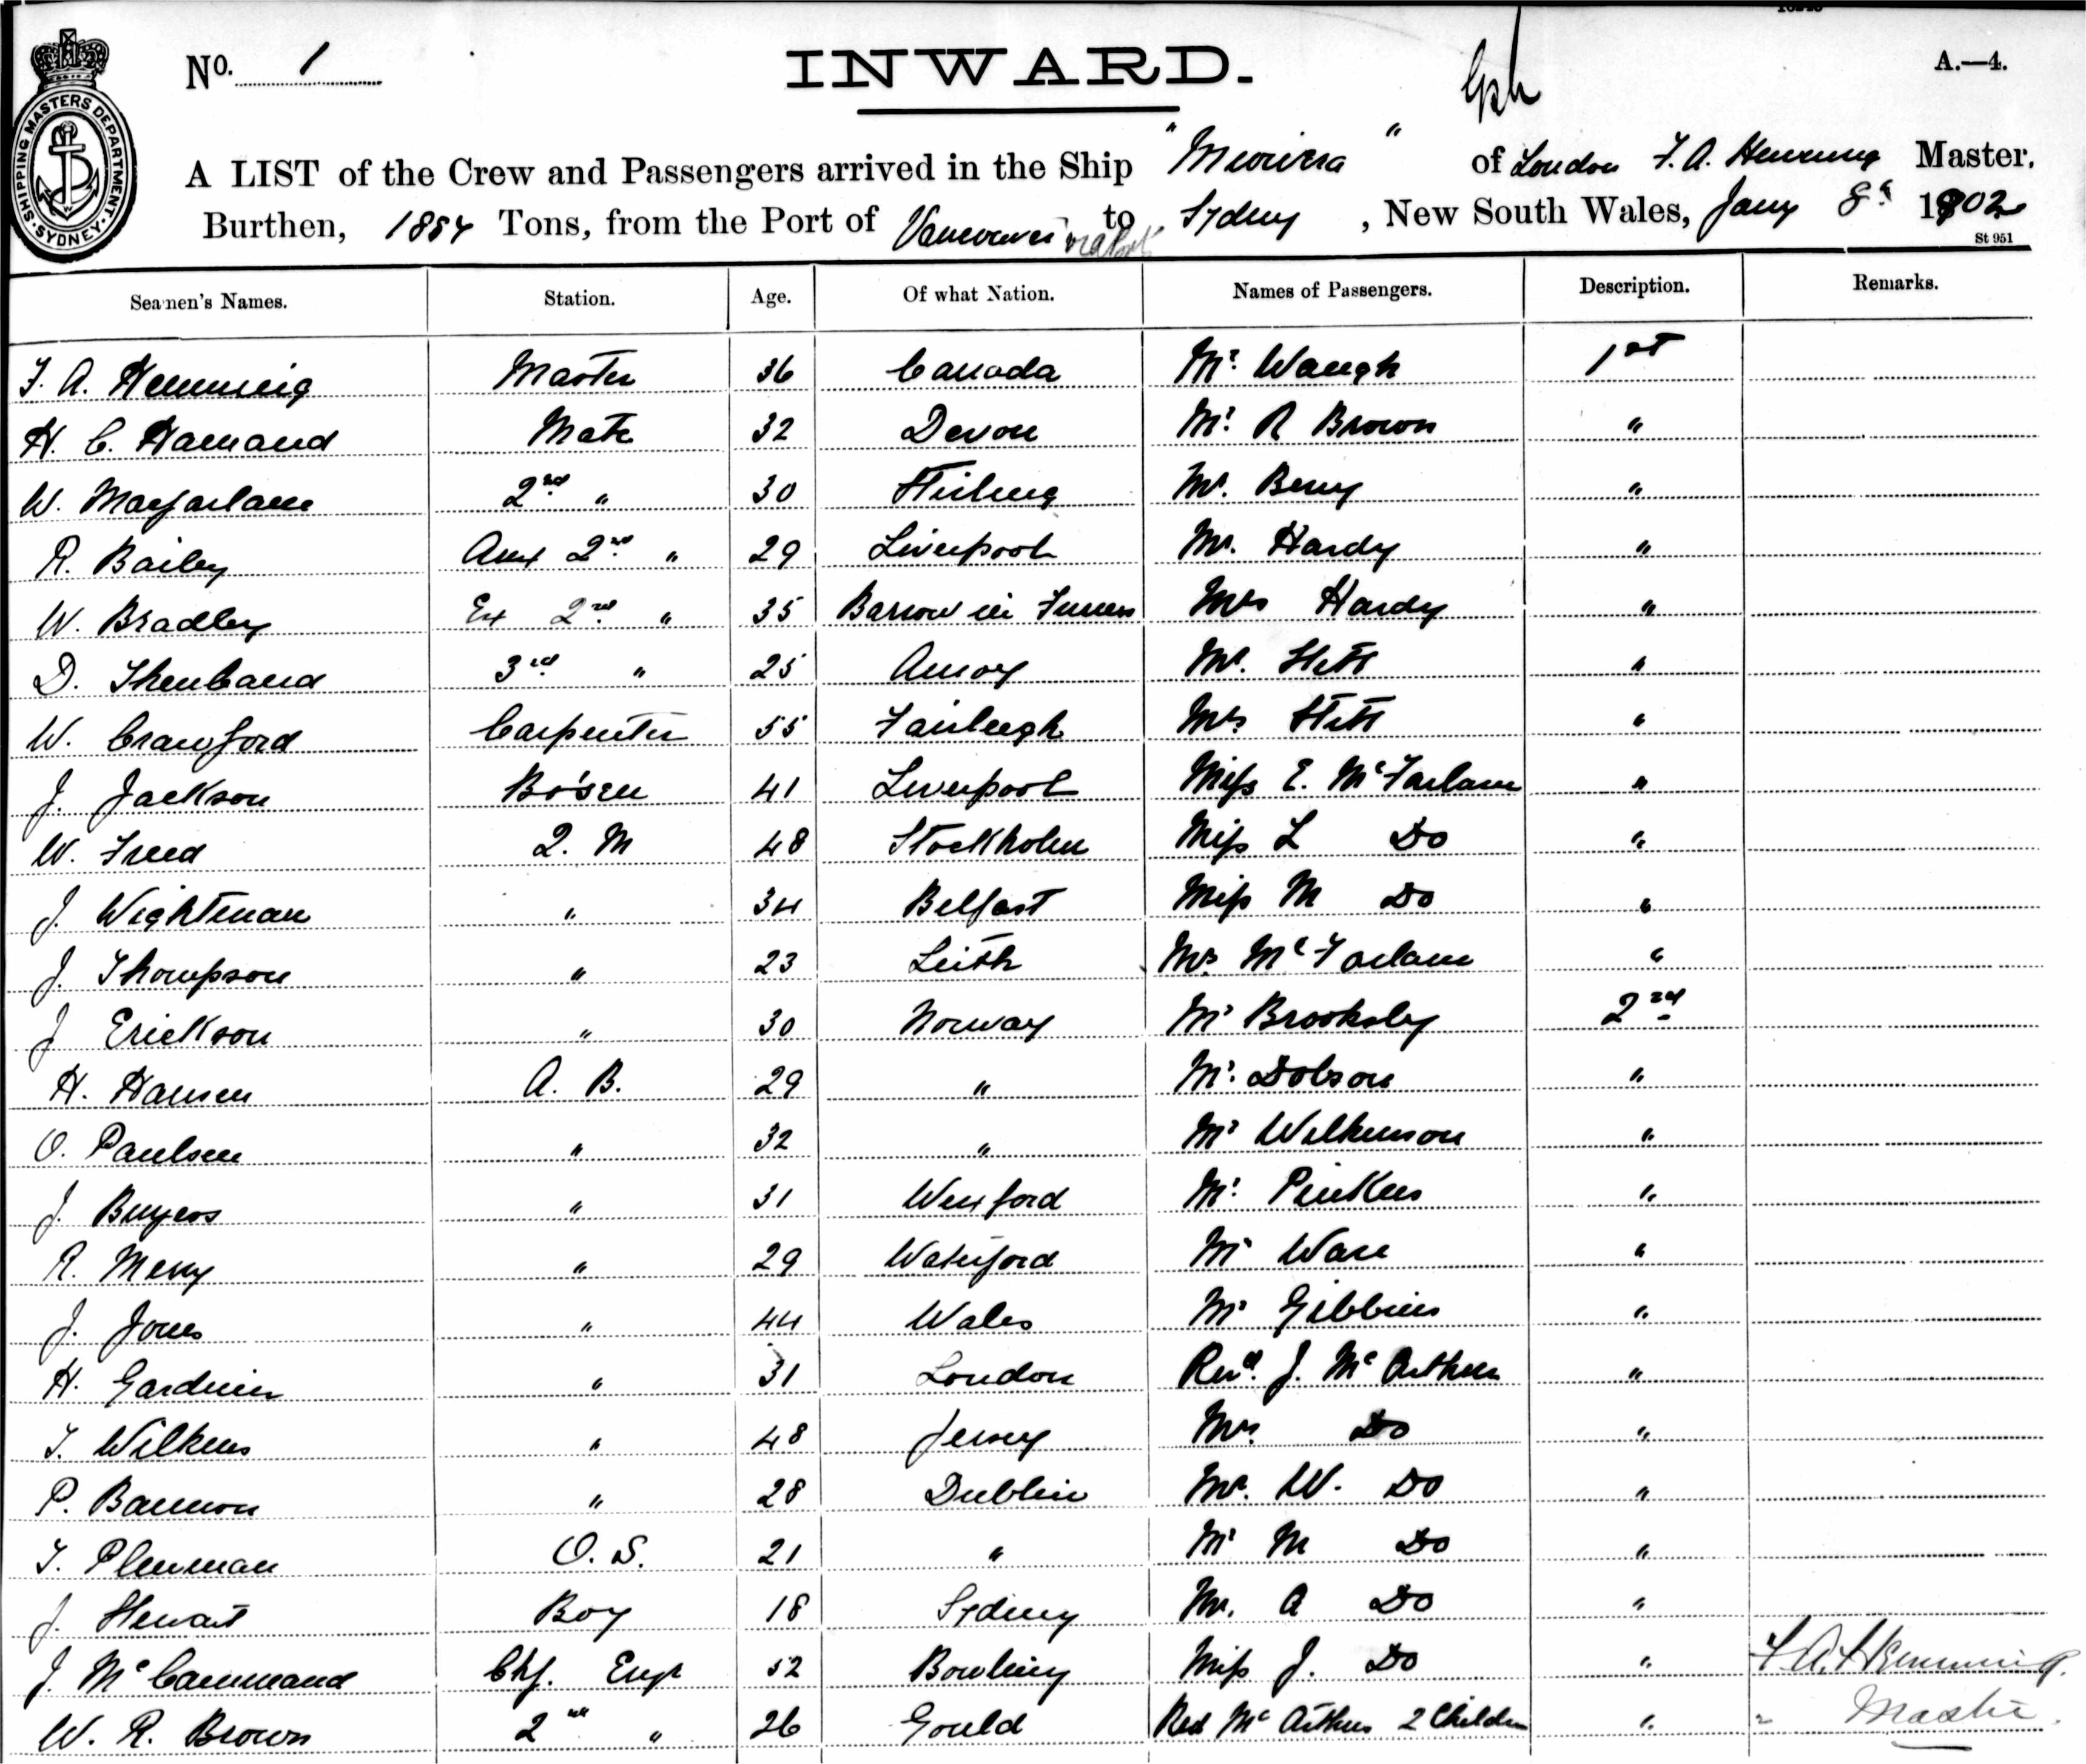 SHIPPING MASTERS DEPARTMENT. SYDNEY.
No. 1
INWARD.
A.—4.
A LIST of the Crew and Passengers arrived in the Ship " " of London F. A. Hemming Master,
Burthen, 1884 Tons, from the Port of Vancouver to Sydney, New South Wales, Jany 8th 1902
St 951
Seamen's Names. Station. Age. Of what Nation. Names of Passengers. Description. Remarks.
F. A. Hemming Master 36 Canada Mr. Waugh 1st
H. C. Hamand Mate 32 Devon Mr. R Brown "
W. Macfarlane 2nd " 30 Stirling Mr. Berry "
R. Bailey Aux 2nd " 29 Liverpool Mr. Hardy "
W. Bradley Ex 2nd " 35 Barrow in Furness Mrs Hardy "
D. 3rd " 25 Amoy Mr. Stitt "
W. Crawford Carpenter 55 Fairleigh Mrs Stitt "
J. Jackson Bo'sen 41 Liverpool Miss E. McFarlane "
W. Freed Q. M 48 Stockholm Miss L Do "
J. Wightman " 34 Belfast Miss M Do "
J. Thompson " 23 Leith Mrs McFarlane "
J Erickson " 30 Norway Mr Brooksby 2nd
H. Hansen A. B. 29 " Mr. Dobson "
O. Paulsen " 32 " Mr Wilkinson "
J. Buyers " 31 Wexford Mr. Pinkus "
R. Merry " 29 Waterford Mr Ware "
J. Jones " 44 Wales Mr Gibbins "
H. Gardiner " 31 London Revd. J. McArthur "
T. Wilkins " 48 Jersey Mrs. Do "
P. Bannon " 28 Dublin Mr. W. Do "
T. Plenman O. S. 21 " Mr M Do "
J. Stewart Boy 18 Sydney Mr. A Do "
J. McCammand Chf. Engr 52 Bowling Miss J. Do " F. A. Hemming.
W. R. Brown 2nd " 26 Gould Rev McArthur 2 Children " Master.